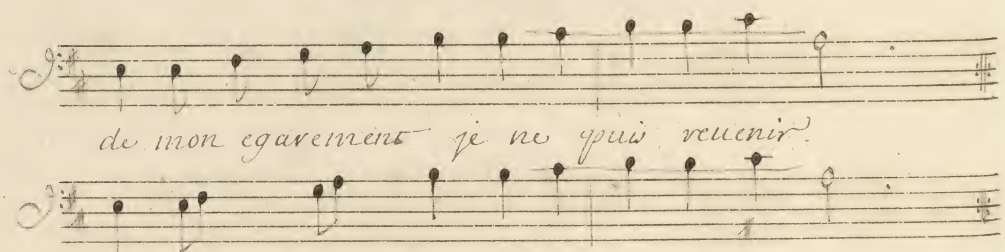 de mon egarement je ne puis reuenir.